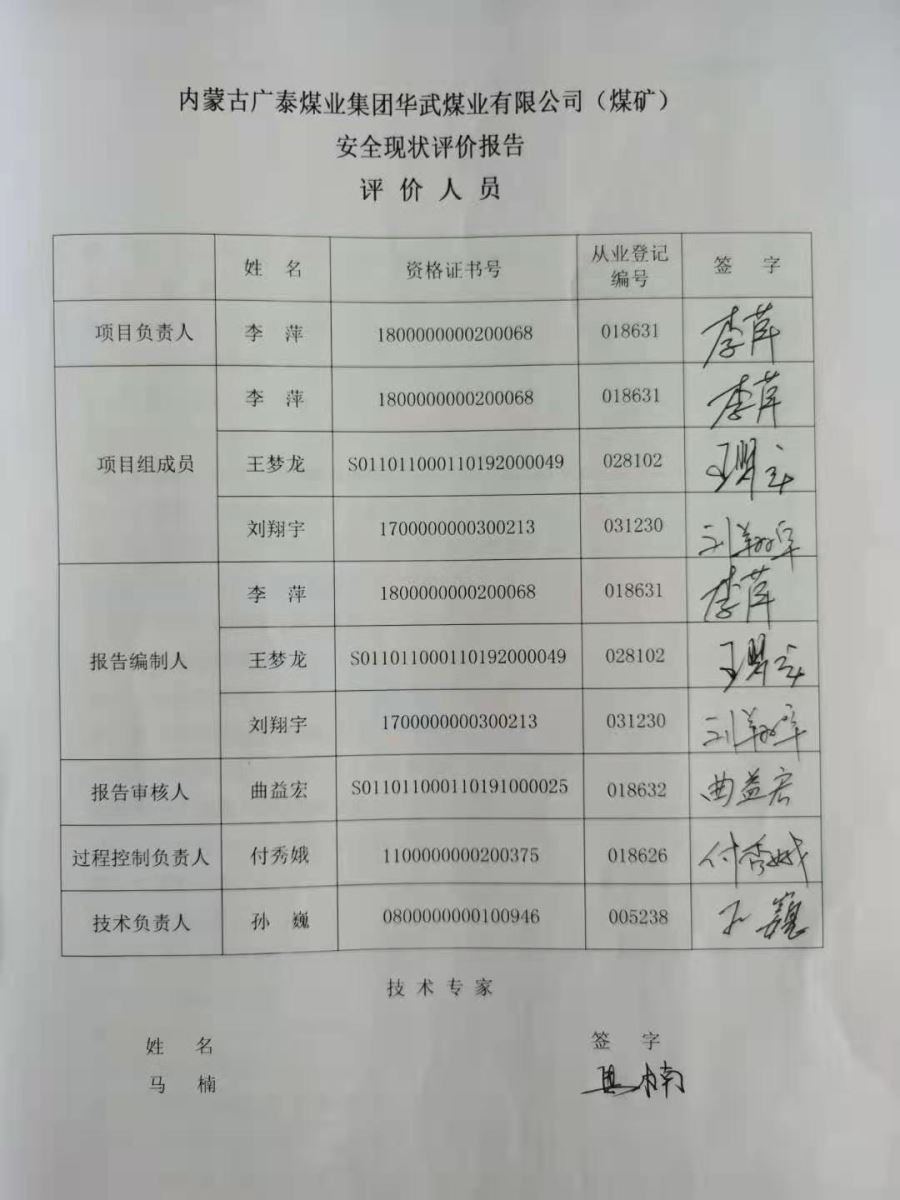 内蒙古广泰煤业集团华武煤业有限公司（煤矿）
安全现状评价报告
评价人员
姓 名 资格证书号 从业登记编号 签 字
项目负责人 李 萍 1800000000200068 018631 李萍
项目组成员 李 萍 1800000000200068 018631 李萍
王梦龙 S011011000110192000049 028102 王梦龙
刘翔宇 1700000000300213 031230 刘翔宇
报告编制人 李 萍 1800000000200068 018631 李萍
王梦龙 S011011000110192000049 028102 王梦龙
刘翔宇 1700000000300213 031230 刘翔宇
报告审核人 曲益宏 S011011000110191000025 018632 曲益宏
过程控制负责人 付秀娥 1100000000200375 018626 付秀娥
技术负责人 孙 巍 0800000000100946 005238 孙巍
技术专家
姓 名 签 字
马 楠 马楠